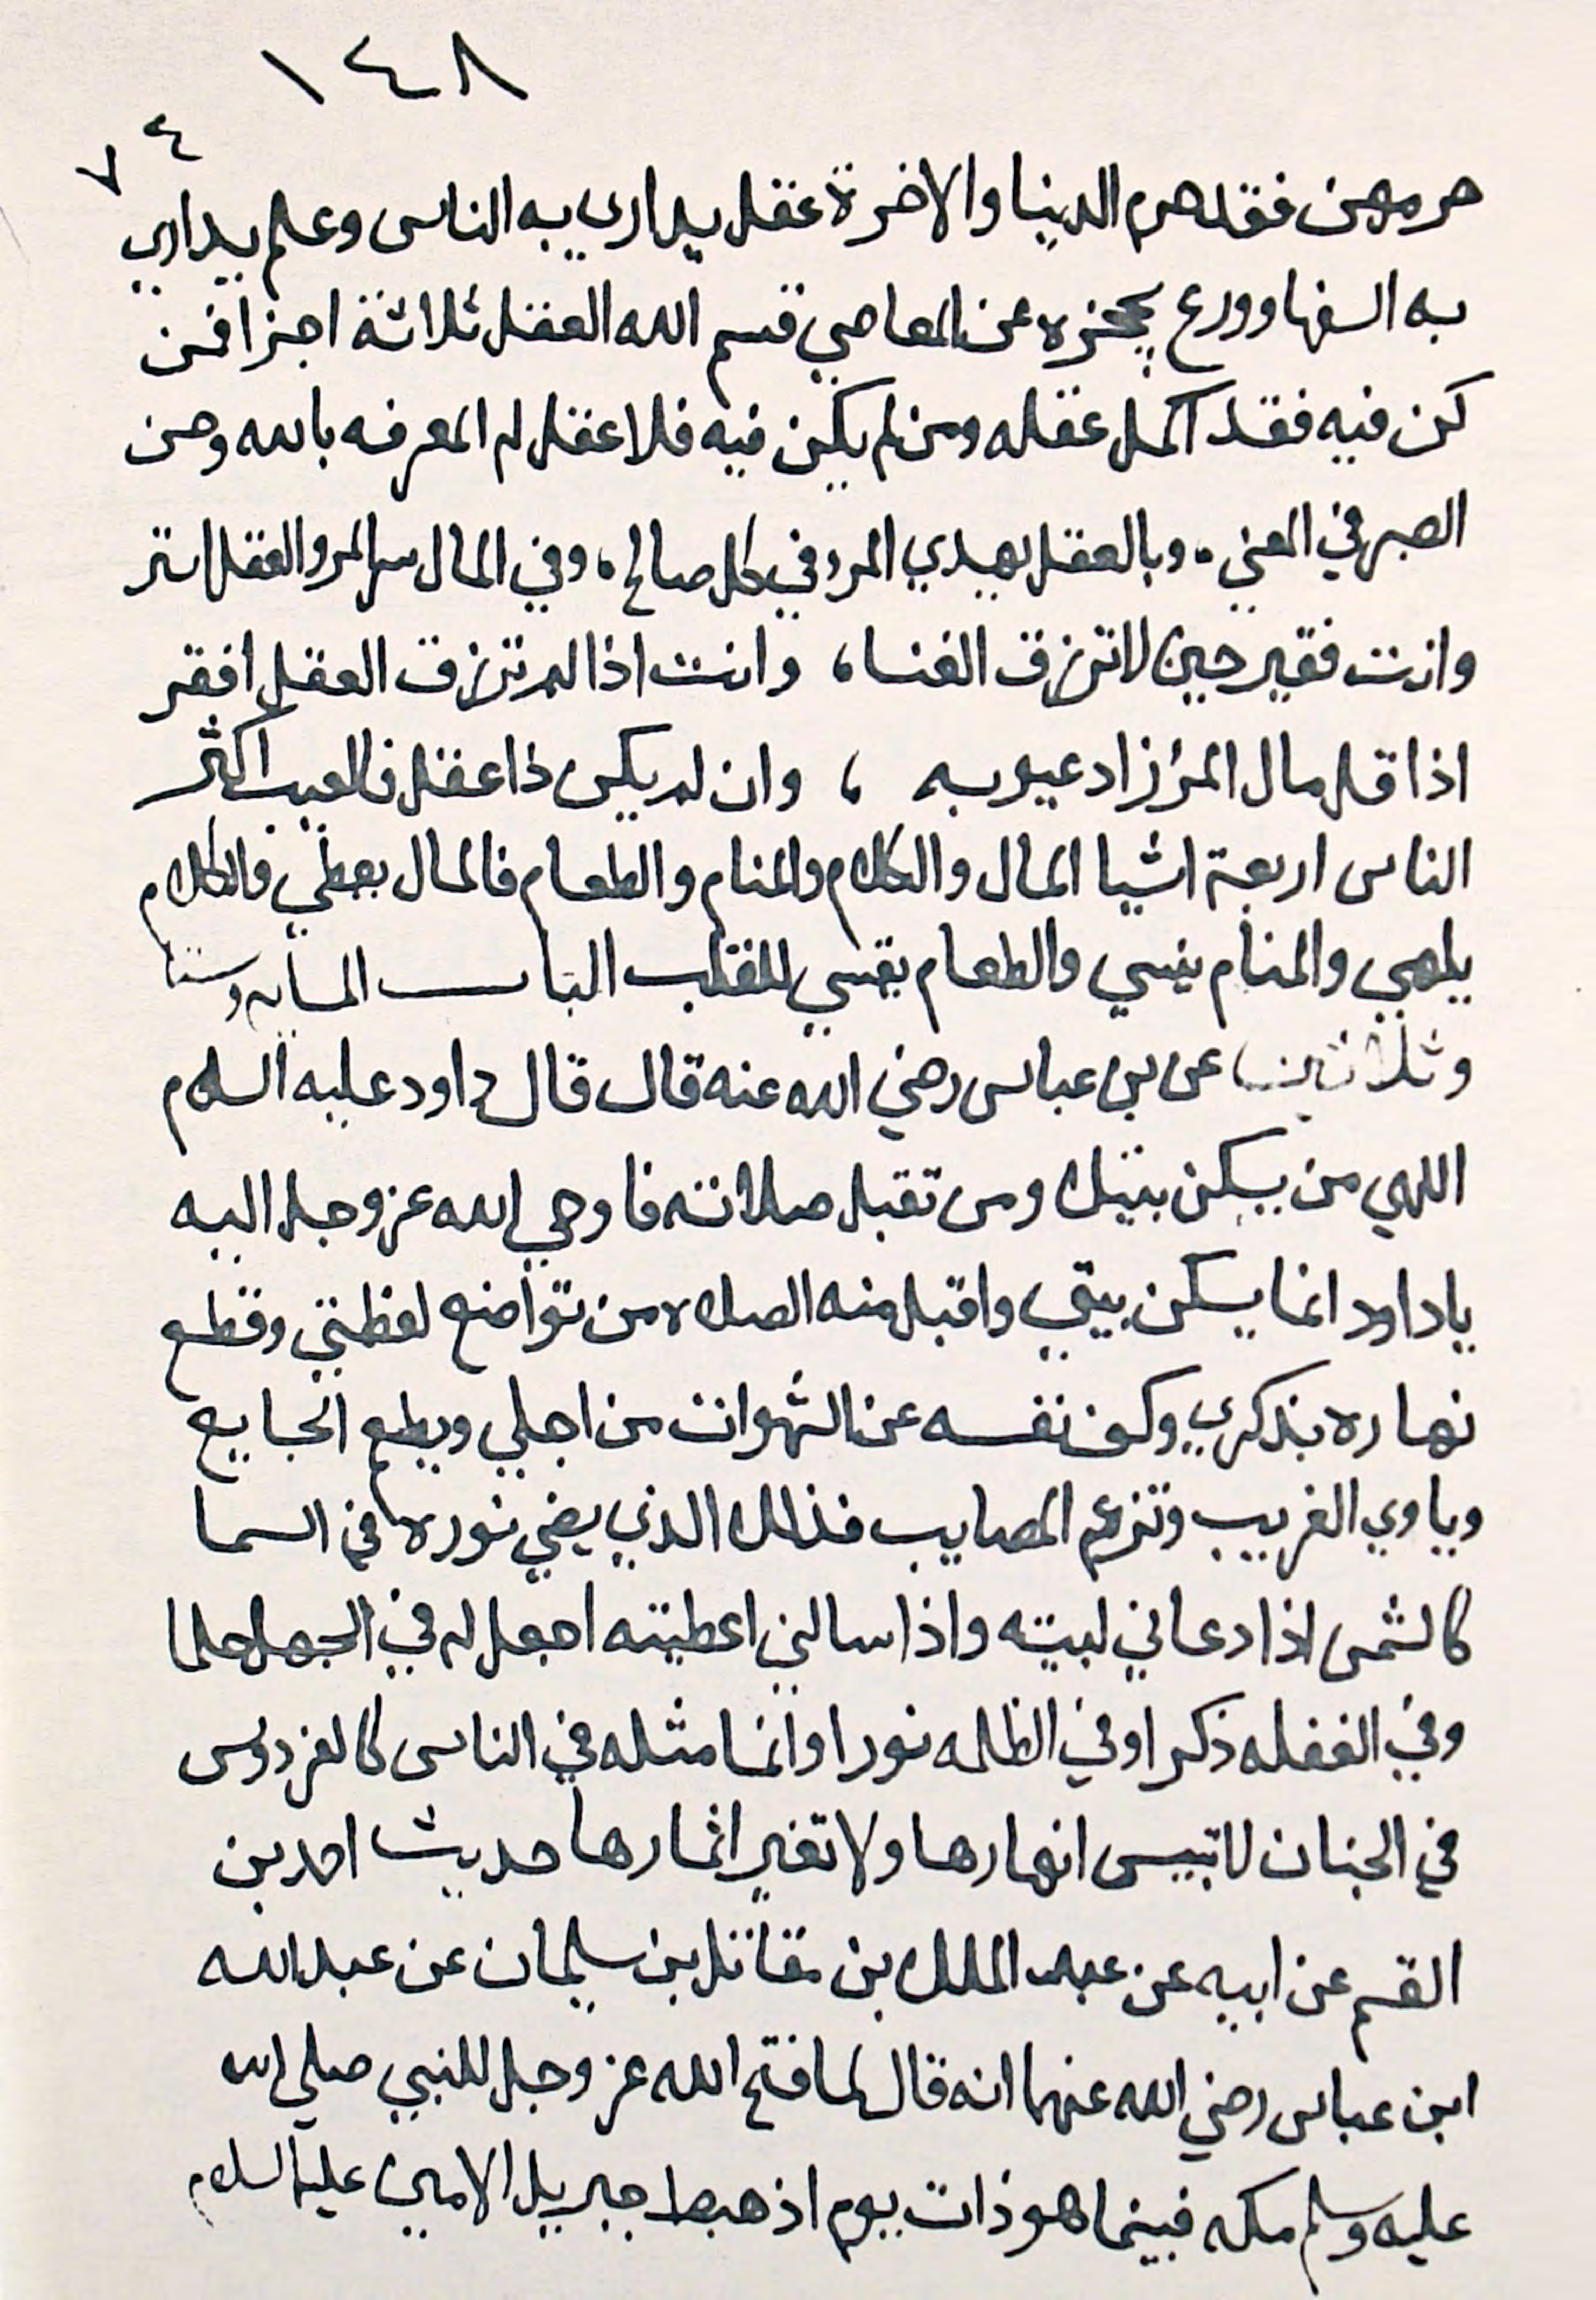 ١٤٨
٧٤
حرمهن فقد حرم الدنيا والاخرة عقل يداري به الناس وعلم يداري
به السفها وورع يحجزه عن المعاصي قسم الله العقل ثلاثة اجزا فمن
كن فيه فقد اكمل عقله ومن لم يكن فيه فلا عقل له المعرفه بالله وحسن
الصبر في وبالعقل يهدي المرء في كل صالح، وفي المال للمر والعقل استر
وانت فقير حين لا ترزق الغنا، وانت اذا لم ترزق العقل افقر
اذا قل مال المرؤ زاد عيوبه ، وان لم يكن ذا عقل فالعيب اكثر
الناس اربعة اشيا المال والكلام والمنام والطعام فالمال يطغي والكلام
يلهي والمنام ينسي والطعام يقسي للقلب الباب الماىه وستة
وثلاثين عن بن عباس رضي الله عنه قال قال داود عليه السلام
اللهي من يسكن بيتك ومن تقبل صلاته فاوحي الله عز وجل اليه
ياداود انما يسكن بيتي واقبل منه الصلاه من تواضع لعظمتي وقطع
نهاره بذكري وكف نفسه عن الشهوات من اجلي ويطعم الجايع
وياوي الغريب المصايب فذالك الذي يضي نوره في السما
كالشمس اذا دعاني لبيته واذا سالني اعطيته اجعل له في الجهل حلما
وفي الغفله ذكرا وفي الظلمه نورا وانما مثله في الناس كالفردوس
في الجنان لا تيبس انهارها ولا تغير اثمارها حديث احمد بن
القسم عن ابيه عن عبد الملك بن مقاتل بن سليمان عن عبدالله
ابن عباس رضي الله عنهما انه قال لما فتح الله عز وجل للنبي صلي الله
عليه وسلم مكه فبينما هو ذات يوم اذ هبط جبريل الامين عليه السلام